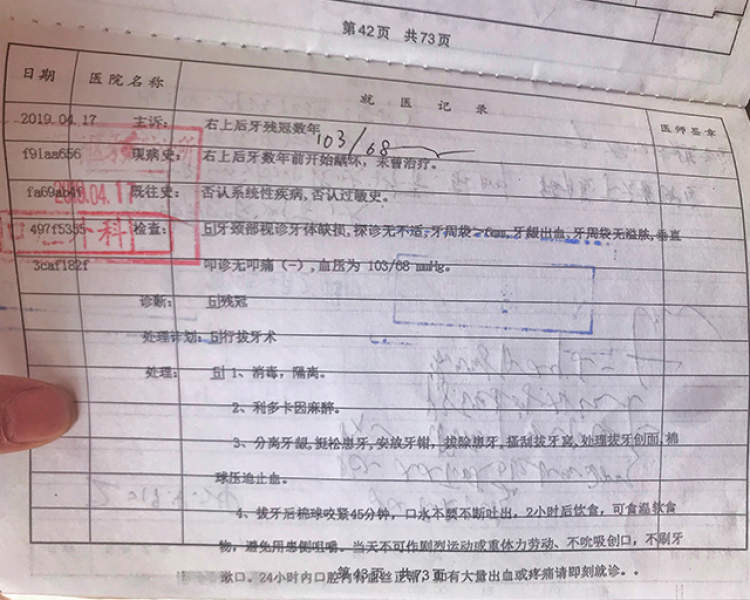 第42页 共73页
日期 医院名称 就医记录 医师签章
2019.04.17 主诉: 右上后牙残冠数年
103/68
f91aa656 现病史: 右上后牙数年前开始龋坏,未曾治疗。
fa69ab4f 既往史: 否认系统性疾病,否认过敏史。
2019.04.17
497f5335 检查: 5|牙颈部视诊牙体缺损,探诊无不适,牙周袋>6mm,牙龈出血,牙周袋无溢脓,垂直
科
3caf182f 叩诊无叩痛(-),血压为 103/68 mmHg。
诊断: 5|残冠
处理计划: 5|行拔牙术
处理: 5| 1、消毒,隔离。
2、利多卡因麻醉。
3、分离牙龈,挺松患牙,安放牙钳,拔除患牙,搔刮拔牙窝,处理拔牙创面,棉
球压迫止血。
4、拔牙后棉球咬紧45分钟,口水不要不断吐出,2小时后饮食,可食温软食
物,避免用患侧咀嚼。当天不可作剧烈运动或重体力劳动、不吮吸创口,不刷牙
漱口。24小时内口腔内有血丝正常,如有大量出血或疼痛请即刻就诊。.
第43页 共73页